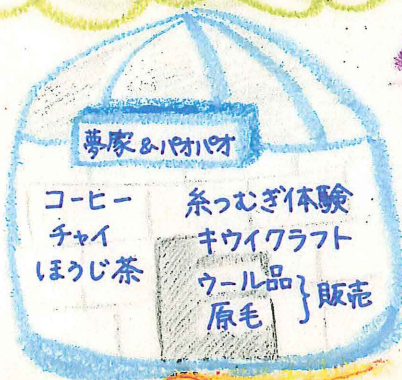 夢家&パオパオ
コーヒー
チャイ
ほうじ茶
糸つむぎ体験
キウイクラフト
ウール品
原毛
} 販売